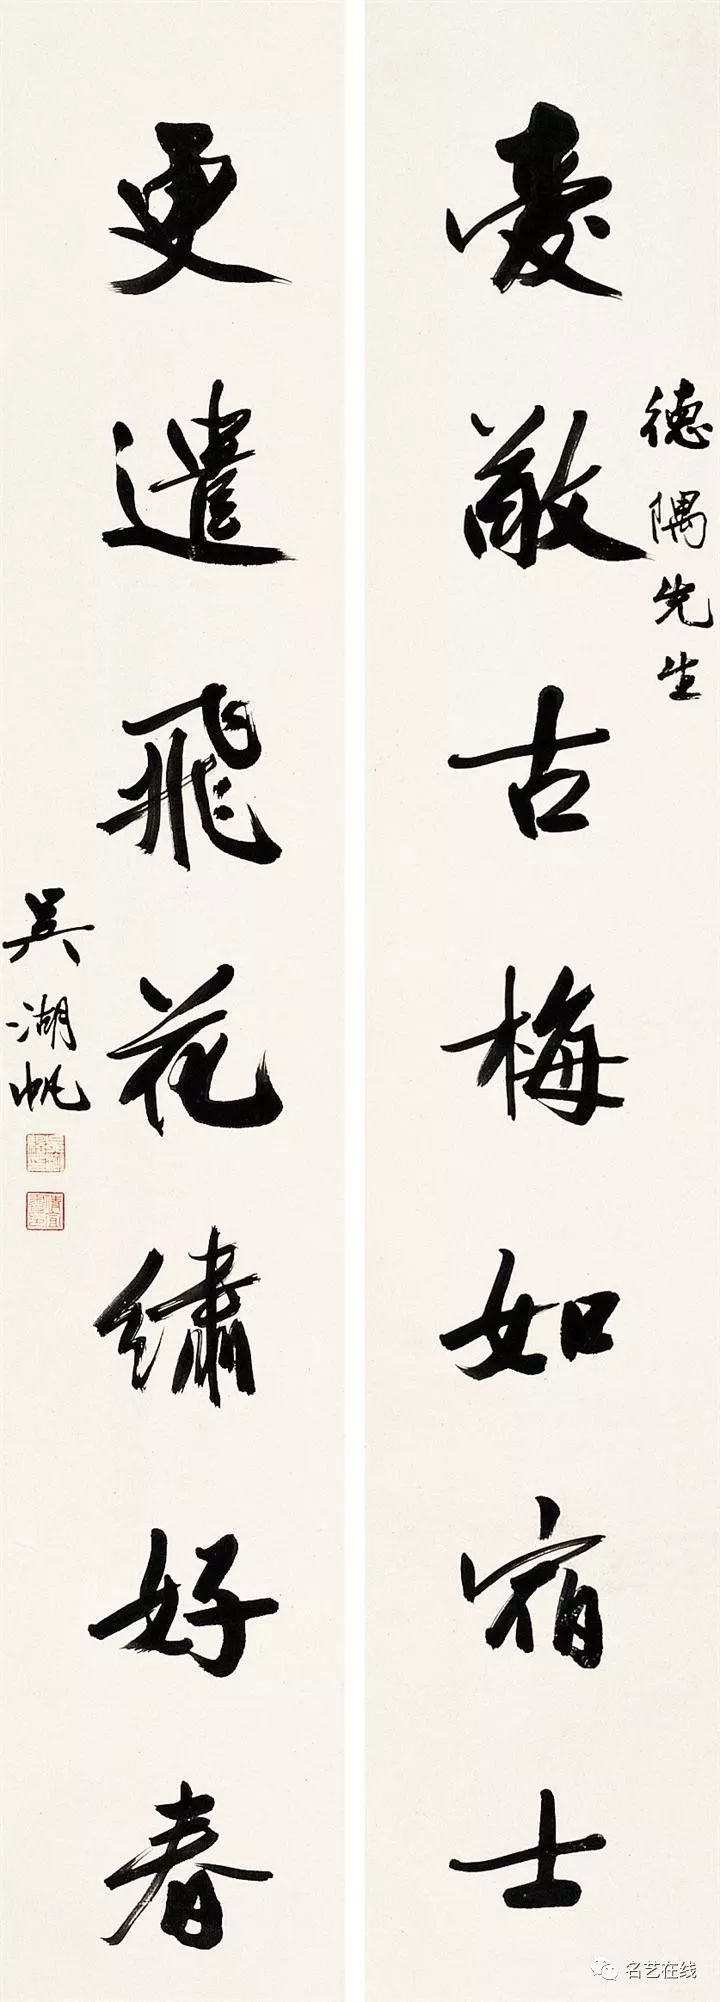 德隅先生
愛敬古梅如宿士
更遣飛花繡好春
吳湖帆
名艺在线